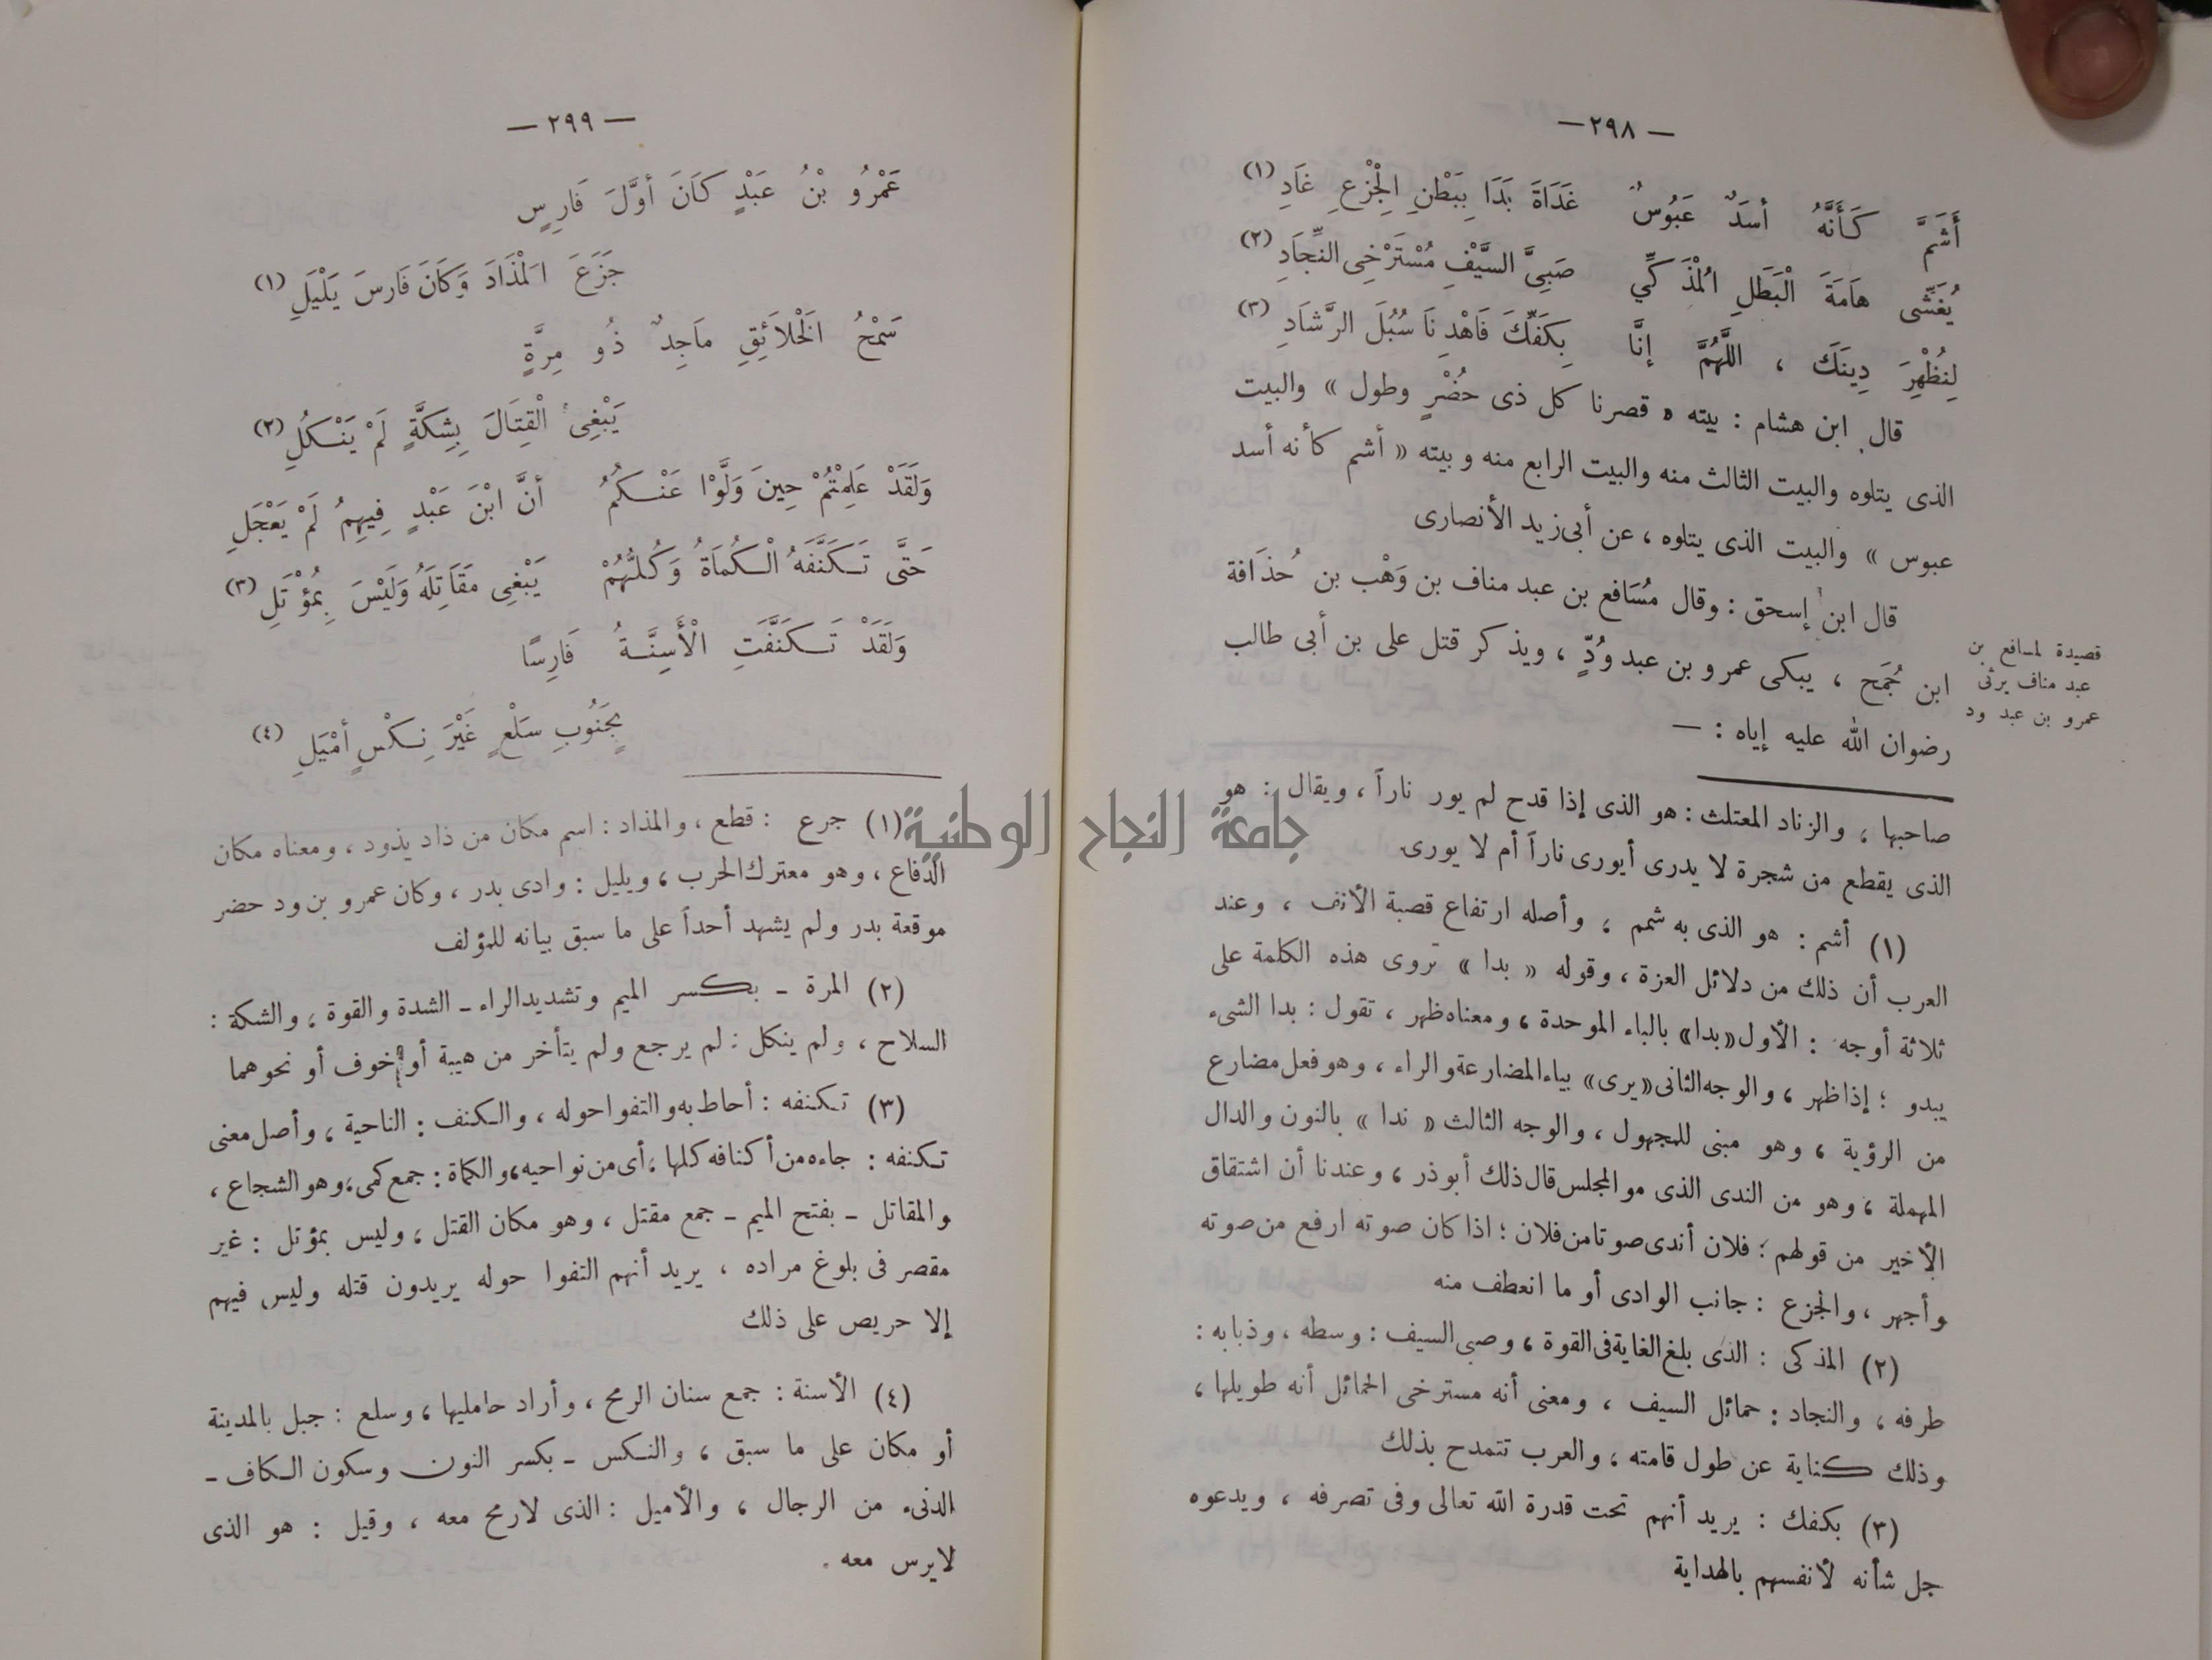 — ٢٩٨ —
أَشَمَّ كَأَنَّهُ أسَدٌ عَبُوسٌ غَدَاةَ بَدَا بِبَطْنِ الْجِزْعِ غَادِ (١)
يُغَشِّى هَامَةَ الْبَطَلِ الْمُذَكِّي صَبِيَّ السَّيْفِ مُسْتَرْخِى النِّجَادِ (٢)
لِنُظْهِرَ دِينَكَ ، اللَّهُمَّ إنَّا بِكَفِّكَ فَاهْدِنَا سُبُلَ الرَّشَادِ (٣)
قال ابن هشام : بيته « قصرنا كل ذى حُضْرٍ وطول » والبيت
الذى يتلوه والبيت الثالث منه والبيت الرابع منه وبيته « أشم كأنه أسد
عبوس » والبيت الذى يتلوه ، عن أبى زيد الأنصارى
قال ابن إسحق : وقال مُسَافع بن عبد مناف بن وَهْب بن حُذَافة
ابن جُمَح ، يبكى عمرو بن عبد وُدٍّ ، ويذكر قتل على بن أبى طالب
رضوان الله عليه إياه : —
قصيدة لمسافع بن
عبد مناف يرثى
عمرو بن عبد ود
صاحبها ، والزناد المعتلث : هو الذى إذا قدح لم يور ناراً ، ويقال : هو
الذى يقطع من شجرة لا يدرى أيورى ناراً أم لا يورى
(١) أشم : هو الذى به شمم ، وأصله ارتفاع قصبة الأنف ، وعند
العرب أن ذلك من دلائل العزة ، وقوله « بدا » تروى هذه الكلمة على
ثلاثة أوجه : الأول «بدا» بالباء الموحدة ، ومعناه ظهر ، تقول : بدا الشىء
يبدو ؛ إذا ظهر ، والوجه الثانى «يرى» بياء المضارعة والراء ، وهو فعل مضارع
من الرؤية ، وهو مبنى للمجهول ، والوجه الثالث « ندا » بالنون والدال
المهملة ، وهو من الندى الذى مو المجلس قال ذلك أبو ذر ، وعندنا أن اشتقاق
الأخير من قولهم : فلان أندى صوتا من فلان ؛ اذا كان صوته ارفع من صوته
وأجهر ، والجزع : جانب الوادى أو ما انعطف منه
(٢) المذكى : الذى بلغ الغاية فى القوة ، وصبى السيف : وسطه ، وذبابه :
طرفه ، والنجاد : حمائل السيف ، ومعنى أنه مسترخى الحمائل أنه طويلها ،
وذلك كناية عن طول قامته ، والعرب تتمدح بذلك
(٣) بكفك : يريد أنهم تحت قدرة الله تعالى وفى تصرفه ، ويدعوه
جل شأنه لأنفسهم بالهداية
— ٢٩٩ —
عَمْرُو بْنُ عَبْدٍ كَانَ أوَّلَ فَارِسٍ
جَزَعَ الْمَذَادَ وَكَانَ فَارسَ يَلْيَلِ (١)
سَمْحُ الْخَلاَئِقِ مَاجِدٌ ذُو مِرَّةٍ
يَبْغِى الْقِتَالَ بِشِكَّةٍ لَمْ يَنْكُلِ (٢)
وَلَقَدْ عَلِمْتُمْ حِينَ وَلَّوْا عَنْكُمُ أنَّ ابْنَ عَبْدٍ فِيهِمُ لَمْ يَعْجَلِ
حَتَّى تَكَنَّفَهُ الْكُمَاةُ وَكُلُّهُمْ يَبْغِى مَقَاتِلَهُ وَلَيْسَ بِمُؤْتَلِ (٣)
وَلَقَدْ تَكَنَّفَتِ الْأَسِنَّةُ فَارِسًا
بِجَنُوبِ سَلْعٍ غَيْرَ نِكْسٍ أمْيَلِ (٤)
(١) جرع : قطع ، والمذاد : اسم مكان من ذاد يذود ، ومعناه مكان
الدفاع ، وهو معترك الحرب ، ويليل : وادى بدر ، وكان عمرو بن ود حضر
موقعة بدر ولم يشهد أحداً على ما سبق بيانه للمؤلف
(٢) المرة - بكسر الميم وتشديد الراء - الشدة والقوة ، والشكة :
السلاح ، ولم ينكل : لم يرجع ولم يتأخر من هيبة أو خوف أو نحوهما
(٣) تكنفه : أحاط به والتفوا حوله ، والكنف : الناحية ، وأصل معنى
تكنفه : جاءه من أكنافه كلها ، أى من نواحيه ، والكماة : جمع كمى ، وهو الشجاع ،
والمقاتل - بفتح الميم - جمع مقتل ، وهو مكان القتل ، وليس بمؤتل : غير
مقصر فى بلوغ مراده ، يريد أنهم التفوا حوله يريدون قتله وليس فيهم
إلا حريص على ذلك
(٤) الأسنة : جمع سنان الرمح ، وأراد حامليها ، وسلع : جبل بالمدينة
أو مكان على ما سبق ، والنكس - بكسر النون وسكون الكاف -
الدنىء من الرجال ، والأميل : الذى لا رمح معه ، وقيل : هو الذى
لا يرس معه .
جامعة النجاح الوطنية